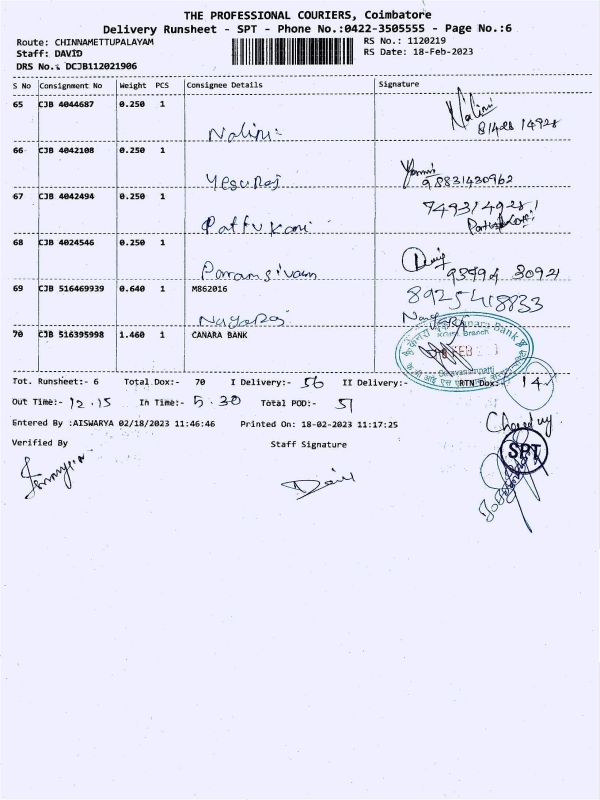 THE PROFESSIONAL COURIERS, Coimbatore
Delivery Runsheet - SPT - Phone No.:0422-3505555 - Page No.:6
Route: CHINNAMETTUPALAYAM
RS No.: 1120219
Staff: DAVID
RS Date: 18-Feb-2023
DRS No.: DCJB112021906
S No Consignment No Weight PCS Consignee Details Signature
65 CJB 4044687 0.250 1
Nalini
Nalini
66 CJB 4042108 0.250 1
Yesuraj
98831430962
67 CJB 4042494 0.250 1
Pattukani
68 CJB 4024546 0.250 1
Paramsivam
93994 30921
69 CJB 516469939 0.640 1 M862016
8925418833
Nagaraj
Nagaraj
70 CJB 516395998 1.460 1 CANARA BANK
Canara Bank
Branch
FEB
Tot. Runsheet:- 6 Total Dox:- 70 I Delivery:- 56 II Delivery:- RTN Dox:- 14
Out Time:- 12.15 In Time:- 5.30 Total POD:- 51
Entered By :AISWARYA 02/18/2023 11:46:46 Printed On: 18-02-2023 11:17:25
Verified By Staff Signature
SPT
David